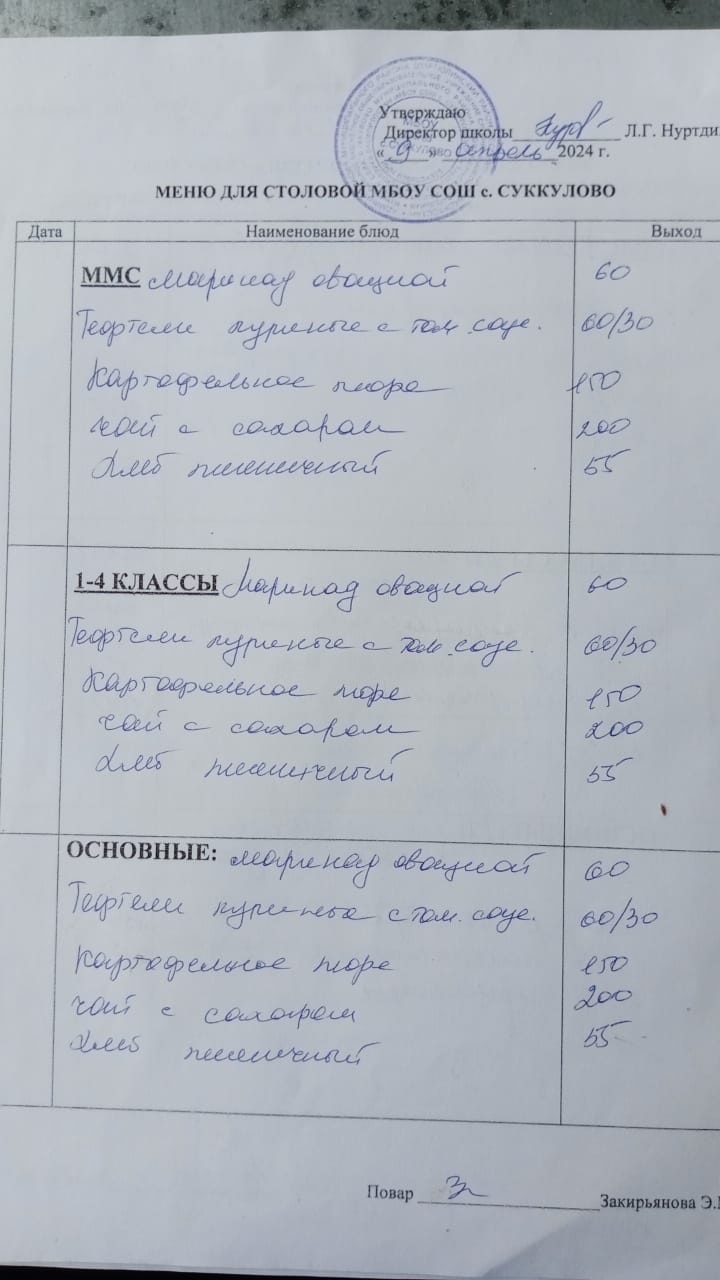 Утверждаю
Директор школы Л.Г. Нуртди
« 9 » апрель 2024 г.
МБОУ
МЕНЮ ДЛЯ СТОЛОВОЙ МБОУ СОШ с. СУККУЛОВО
Дата Наименование блюд Выход
ММС Маринад овощной 60
Тефтели куриные с том. соус. 60/30
Картофельное пюре 150
чай с сахаром 200
Хлеб пшеничный 55
1-4 КЛАССЫ Маринад овощной 60
Тефтели куриные с том. соус. 60/30
Картофельное пюре 150
чай с сахаром 200
Хлеб пшеничный 55
ОСНОВНЫЕ: Маринад овощной 60
Тефтели куриные с том. соус. 60/30
Картофельное пюре 150
чай с сахаром 200
Хлеб пшеничный 55
Повар Закирьянова Э.